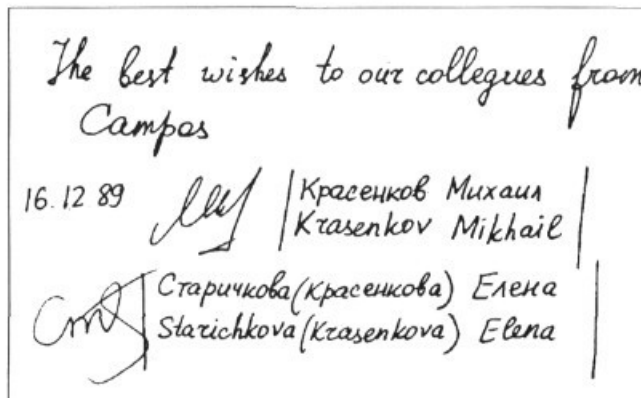 The best wishes to our collegues from
Campos
16.12 89 Красенков Михаил
Krasenkov Mikhail
Старичкова (Красенкова) Елена
Starichkova (Krasenkova) Elena